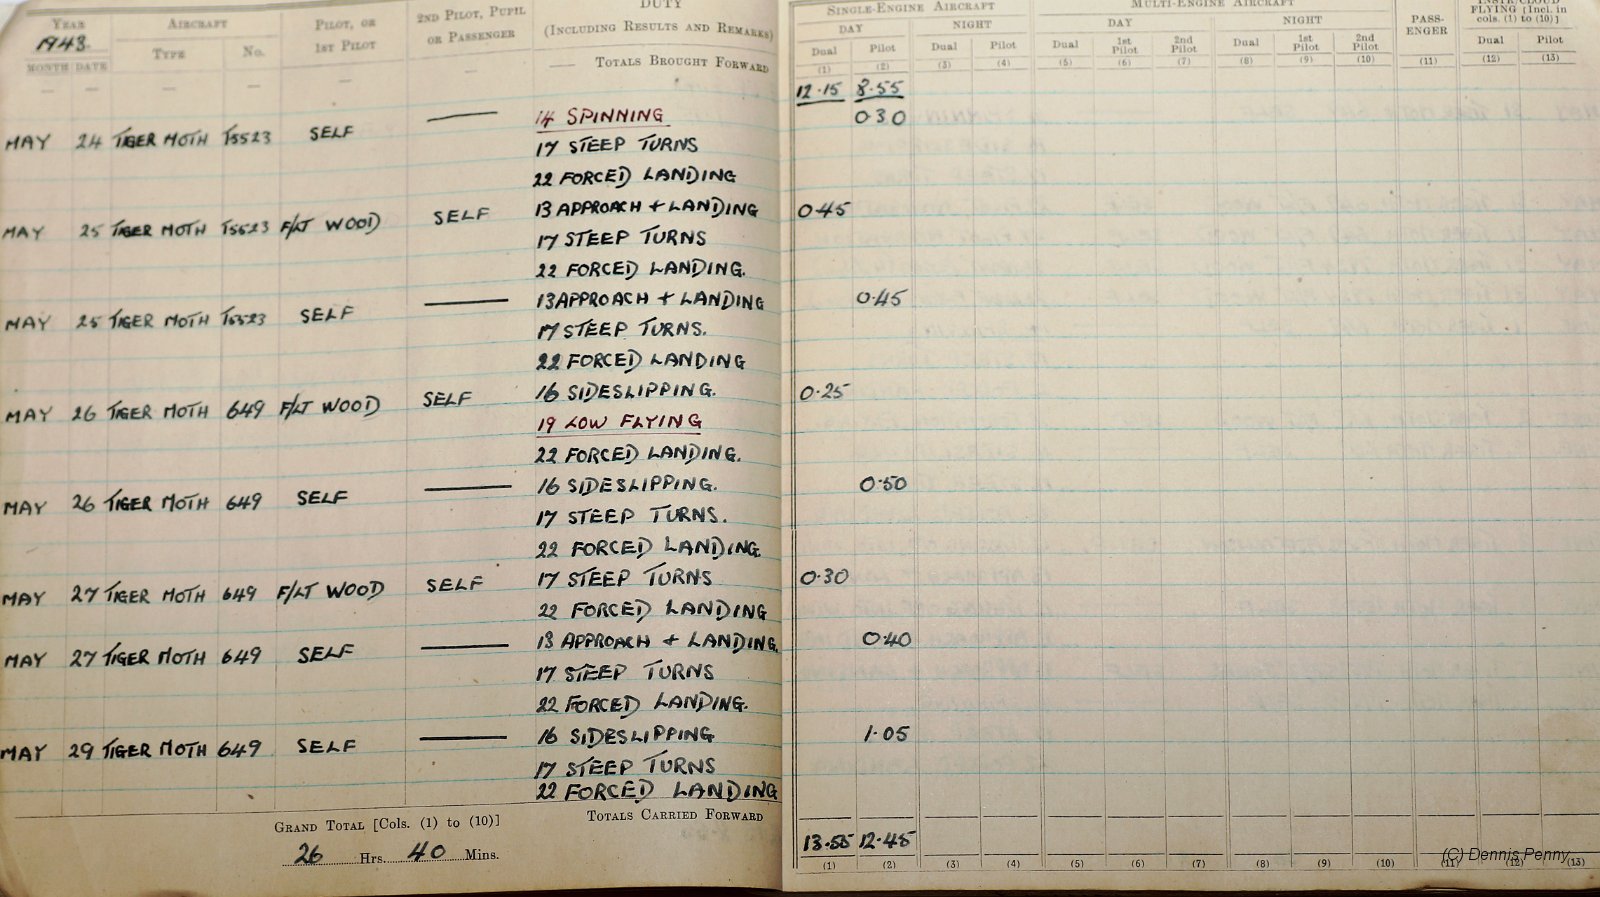 YEAR AIRCRAFT PILOT, OR 1ST PILOT 2ND PILOT, PUPIL OR PASSENGER DUTY (INCLUDING RESULTS AND REMARKS) SINGLE-ENGINE AIRCRAFT MULTI-ENGINE AIRCRAFT PASS-ENGER INSTR/CLOUD FLYING [Incl. in cols. (1) to (10)]
1943 DAY NIGHT DAY NIGHT
MONTH DATE TYPE No. Dual Pilot Dual Pilot Dual 1st Pilot 2nd Pilot Dual 1st Pilot 2nd Pilot Dual Pilot
(1) (2) (3) (4) (5) (6) (7) (8) (9) (10) (11) (12) (13)
— — — — — — — TOTALS BROUGHT FORWARD 12.15 8.55
14 SPINNING 0.30
MAY 24 TIGER MOTH T5523 SELF — 17 STEEP TURNS
22 FORCED LANDING
13 APPROACH + LANDING 0.45
MAY 25 TIGER MOTH T5523 F/LT WOOD SELF 17 STEEP TURNS
22 FORCED LANDING.
13 APPROACH + LANDING 0.45
MAY 25 TIGER MOTH T5523 SELF — 17 STEEP TURNS.
22 FORCED LANDING
16 SIDESLIPPING. 0.25
MAY 26 TIGER MOTH 649 F/LT WOOD SELF 19 LOW FLYING
22 FORCED LANDING.
16 SIDESLIPPING. 0.50
MAY 26 TIGER MOTH 649 SELF — 17 STEEP TURNS.
22 FORCED LANDING.
17 STEEP TURNS 0.30
MAY 27 TIGER MOTH 649 F/LT WOOD SELF 22 FORCED LANDING
13 APPROACH + LANDING. 0.40
MAY 27 TIGER MOTH 649 SELF — 17 STEEP TURNS
22 FORCED LANDING.
16 SIDESLIPPING 1.05
MAY 29 TIGER MOTH 649 SELF — 17 STEEP TURNS
22 FORCED LANDING
GRAND TOTAL [Cols. (1) to (10)] TOTALS CARRIED FORWARD
26 Hrs. 40 Mins. 13.55 12.45
(1) (2) (3) (4) (5) (6) (7) (8) (9) (10) (11) (12) (13)
(C) Dennis Penny